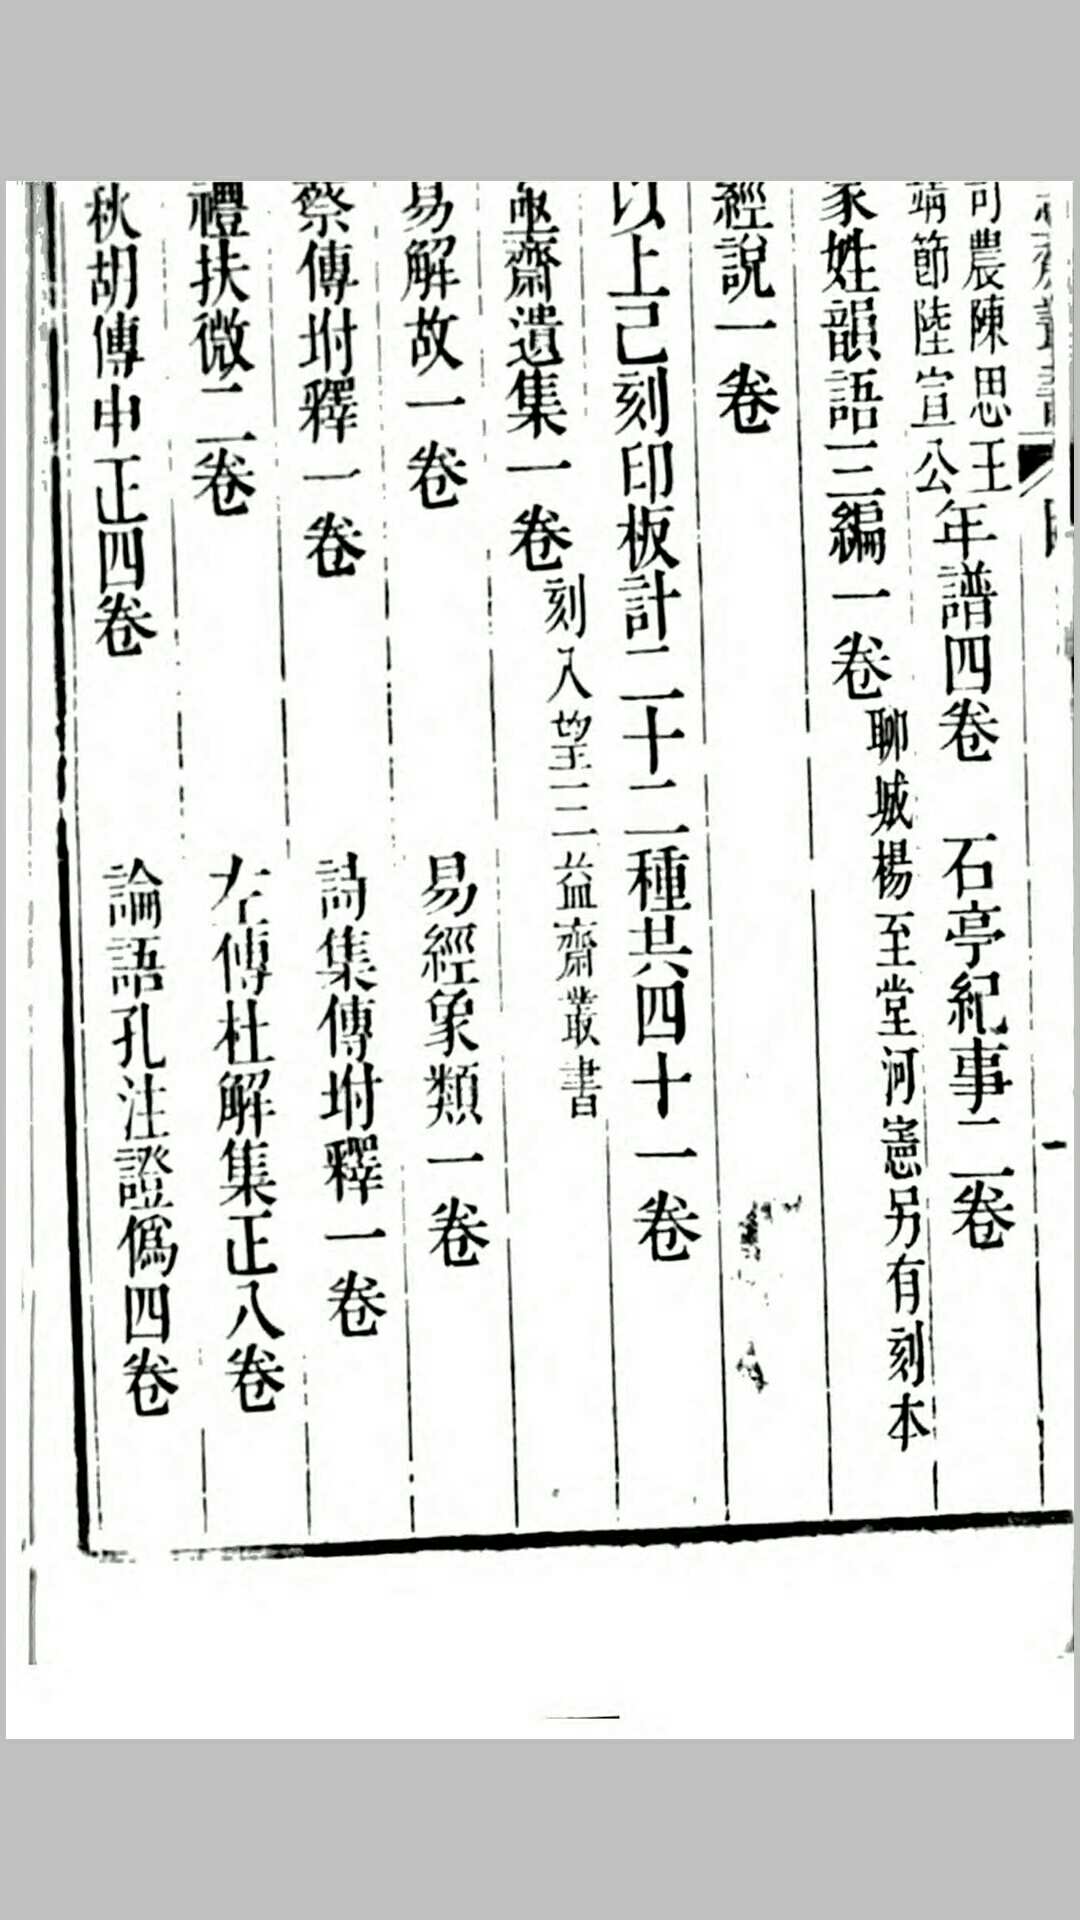 司農陳思王
靖節陸宣公
年譜四卷　石亭紀事二卷
家姓韻語三編一卷
聊城楊至堂河𢡟另有刻本
經說一卷
以上已刻印板計二十二種共四十一卷
齋遺集一卷
刻入望三益齋叢書
易解故一卷　易經象類一卷
蔡傳坿釋一卷　詩集傳坿釋一卷
禮扶微二卷　左傳杜解集正八卷
秋胡傳申正四卷　論語孔注證僞四卷